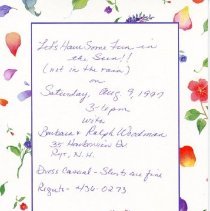 Let's Have Some Fun in
the Sun!!
(not in the rain)
on
Saturday Aug 9, 1997
3-6 pm
with
Barbara & Ralph Workman
35 Harborview Dr
Rye, N.H.
Dress Casual - Shorts are fine
Regrets - 436-0273